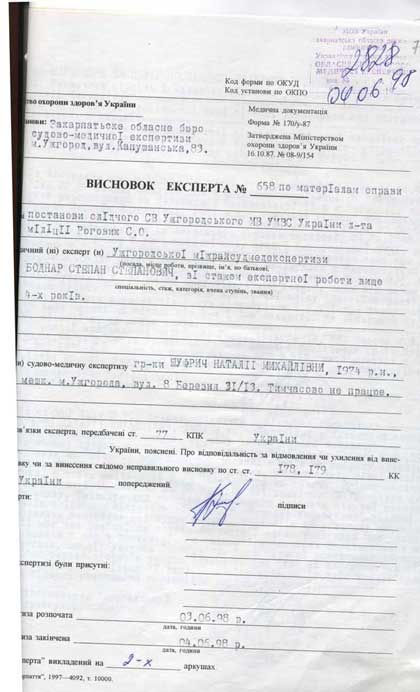 2828
04.06.98
7
Код форми по ОКУД
Код установи по ОКПО
тво охорони здоров'я України
нови: Закарпатське обласне бюро
судово-медичної експертизи
м.Ужгород,вул.Капушанська,83.
Медична документація
Форма № 170/у-87
Затверджена Міністерством
охорони здоров'я України
16.10.87. № 08-9/154
ВИСНОВОК ЕКСПЕРТА № 658 по матеріалам справи
постанови слідчого СВ Ужгородського МВ УМВС України л-та
міліції Рогович С.О.
ичний (ні) експерт (и) Ужгородської міжрайсудмедекспертизи
(посада, місце роботи, прізвище, ім'я, по батькові,
БОДНАР СТЕПАН СТЕПАНОВИЧ, зі стажем експертної роботи вище
спеціальність, стаж, категорія, вчена ступінь, звання)
4-х років.
и) судово-медичну експертизу гр-ки ШУФРИЧ НАТАЛІЇ МИХАЙЛІВНИ, 1974 р.н.,
мешк. м.Ужгорода, вул. 8 Березня 31/13. Тимчасово не працює.
в'язки експерта, передбачені ст. 77 КПК України
України, пояснені. Про відповідальність за відмовлення чи ухилення від вине-
вку чи за винесення свідомо неправильного висновку по ст. ст. 178, 179 КК
України попереджений.
рти: підписи
спертизі були присутні:
иза розпочата 03.06.98 р.
дата, години
иза закінчена 04.06.98 р.
дата, години
перта" викладений на 2-х аркушах
арпаття", 1997—4092, т. 10000.